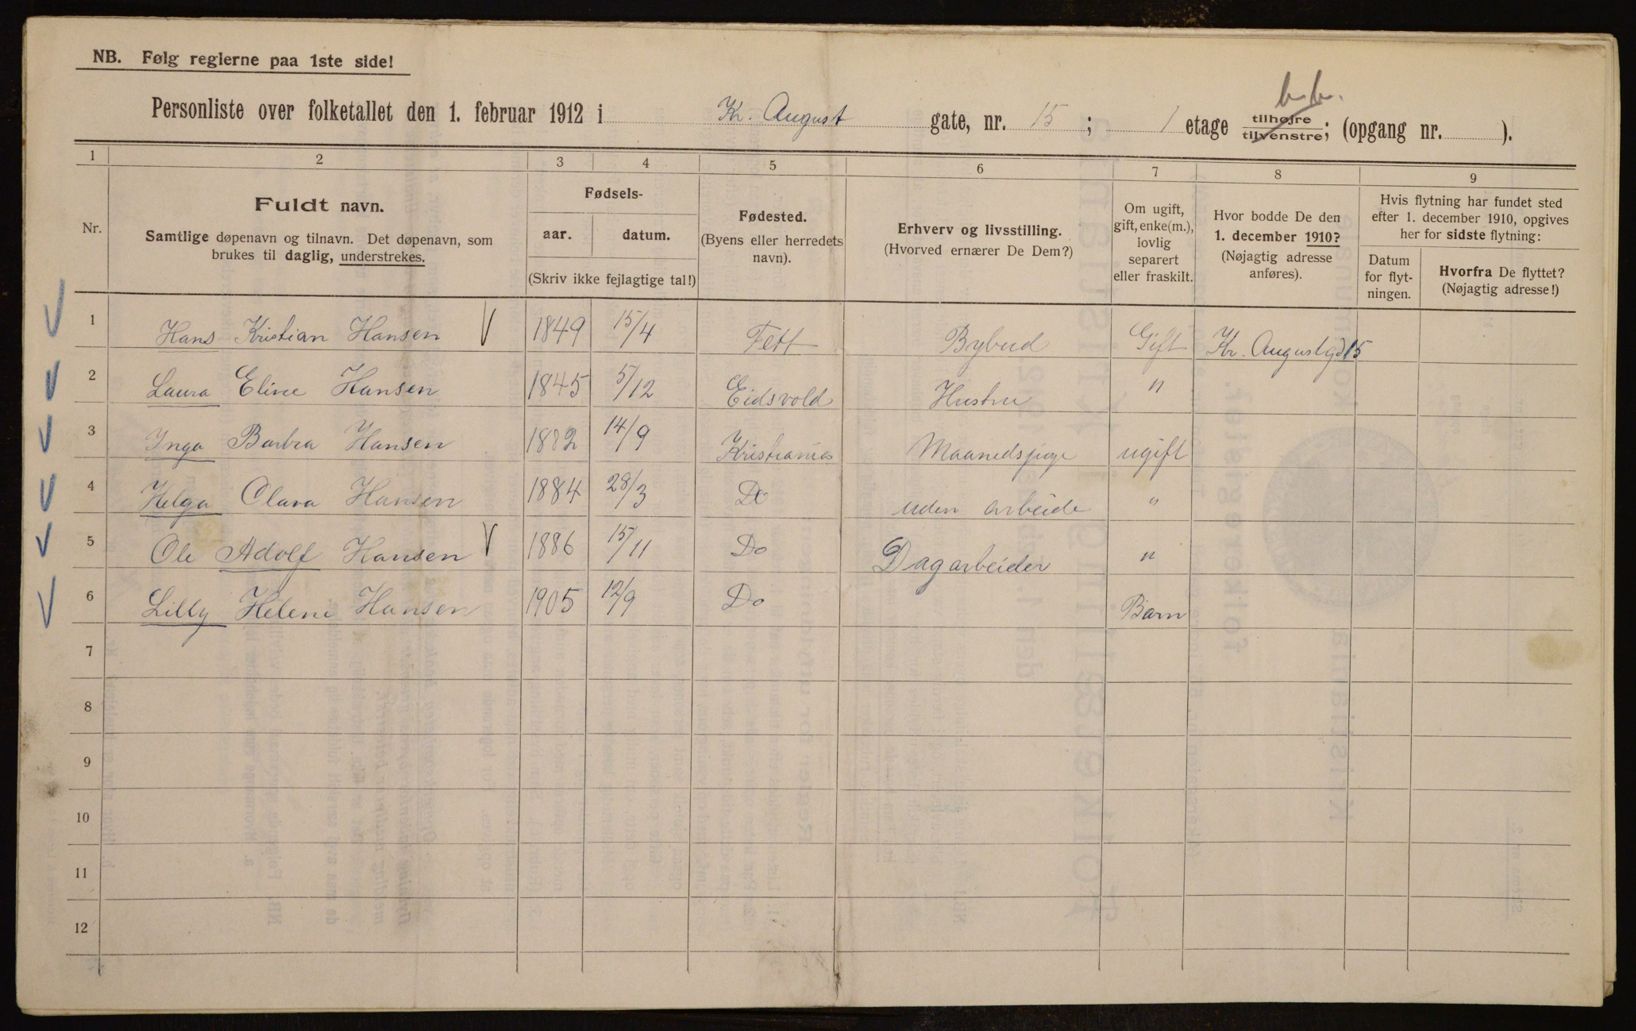 NB. Følg reglerne paa 1ste side!
Personliste over folketallet den 1. februar 1912 i Kr. August gate, nr. 15; 1 etage tilhøjre tilvenstre; (opgang nr. ).
1 2 3 4 5 6 7 8 9
Nr.
Fuldt navn.
Samtlige døpenavn og tilnavn. Det døpenavn, som
brukes til daglig, understrekes.
Fødsels-
aar. datum.
(Skriv ikke fejlagtige tal!)
Fødested.
(Byens eller herredets
navn).
Erhverv og livsstilling.
(Hvorved ernærer De Dem?)
Om ugift,
gift, enke(m.),
lovlig
separert
eller fraskilt.
Hvor bodde De den
1. december 1910?
(Nøjagtig adresse
anføres).
Hvis flytning har fundet sted
efter 1. december 1910, opgives
her for sidste flytning:
Datum
for flyt-
ningen.
Hvorfra De flyttet?
(Nøjagtig adresse!)
1 Hans Kristian Hansen 1849 15/4 Fett Bybud Gift Kr. Augustgd 15
2 Laura Eline Hansen 1845 5/12 Eidsvold Hustru "
3 Inga Barbra Hansen 1882 14/9 Kristiania ugift
4 Helga Clara Hansen 1884 28/3 Do uden arbeide "
5 Ole Adolf Hansen 1886 15/11 Do Dagarbeider "
6 Lilly Helene Hansen 1905 12/9 Do Barn
7
8
9
10
11
12